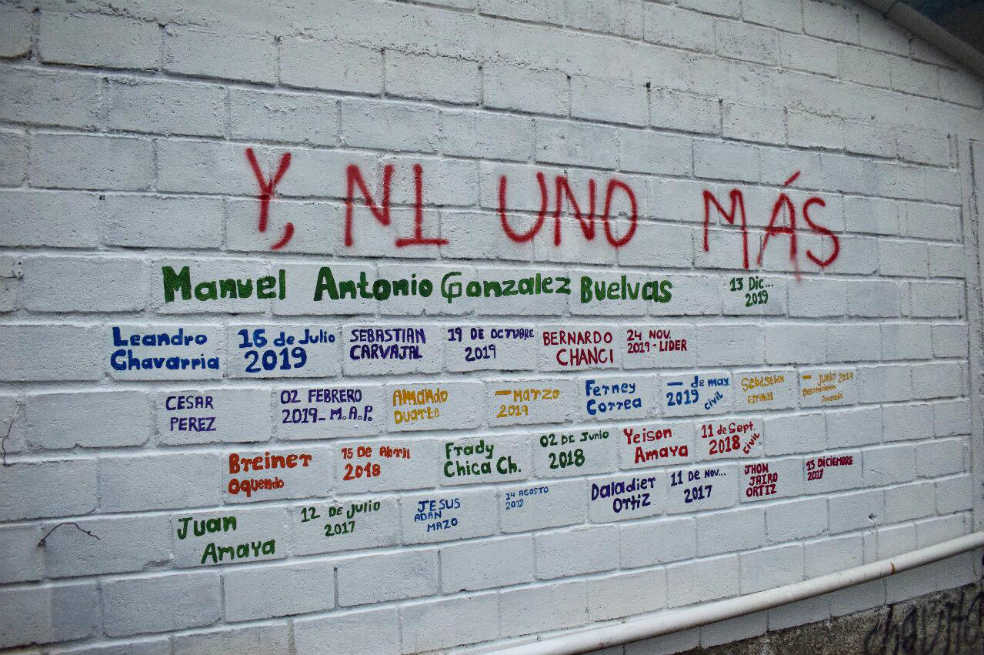 Y, NI UNO MÁS
Manuel Antonio Gonzalez Buelvas 13 Dic... 2019
Leandro Chavarria 16 de Julio 2019 SEBASTIAN CARVAJAL 19 DE OCTUBRE 2019 BERNARDO CHANCI 24 NOV. 2019 - LIDER
CESAR PEREZ 02 FEBRERO 2019 - M.A.P. Amando Duarte — MARZO 2019 Ferney Correa — de may 2019 civil Sebastian — Junio 2019
Breiner Oquendo 15 De Abril 2018 Frady Chica Ch. 02 De Junio 2018 Yeison Amaya 11 de Sept. 2018 civil
Juan Amaya 12 de Julio 2017 JESUS ADAN MAZO 24 AGOSTO 2017 Daladier Ortiz 11 De Nov... 2017 JHON JAIRO ORTIZ 13 DICIEMBRE 2017